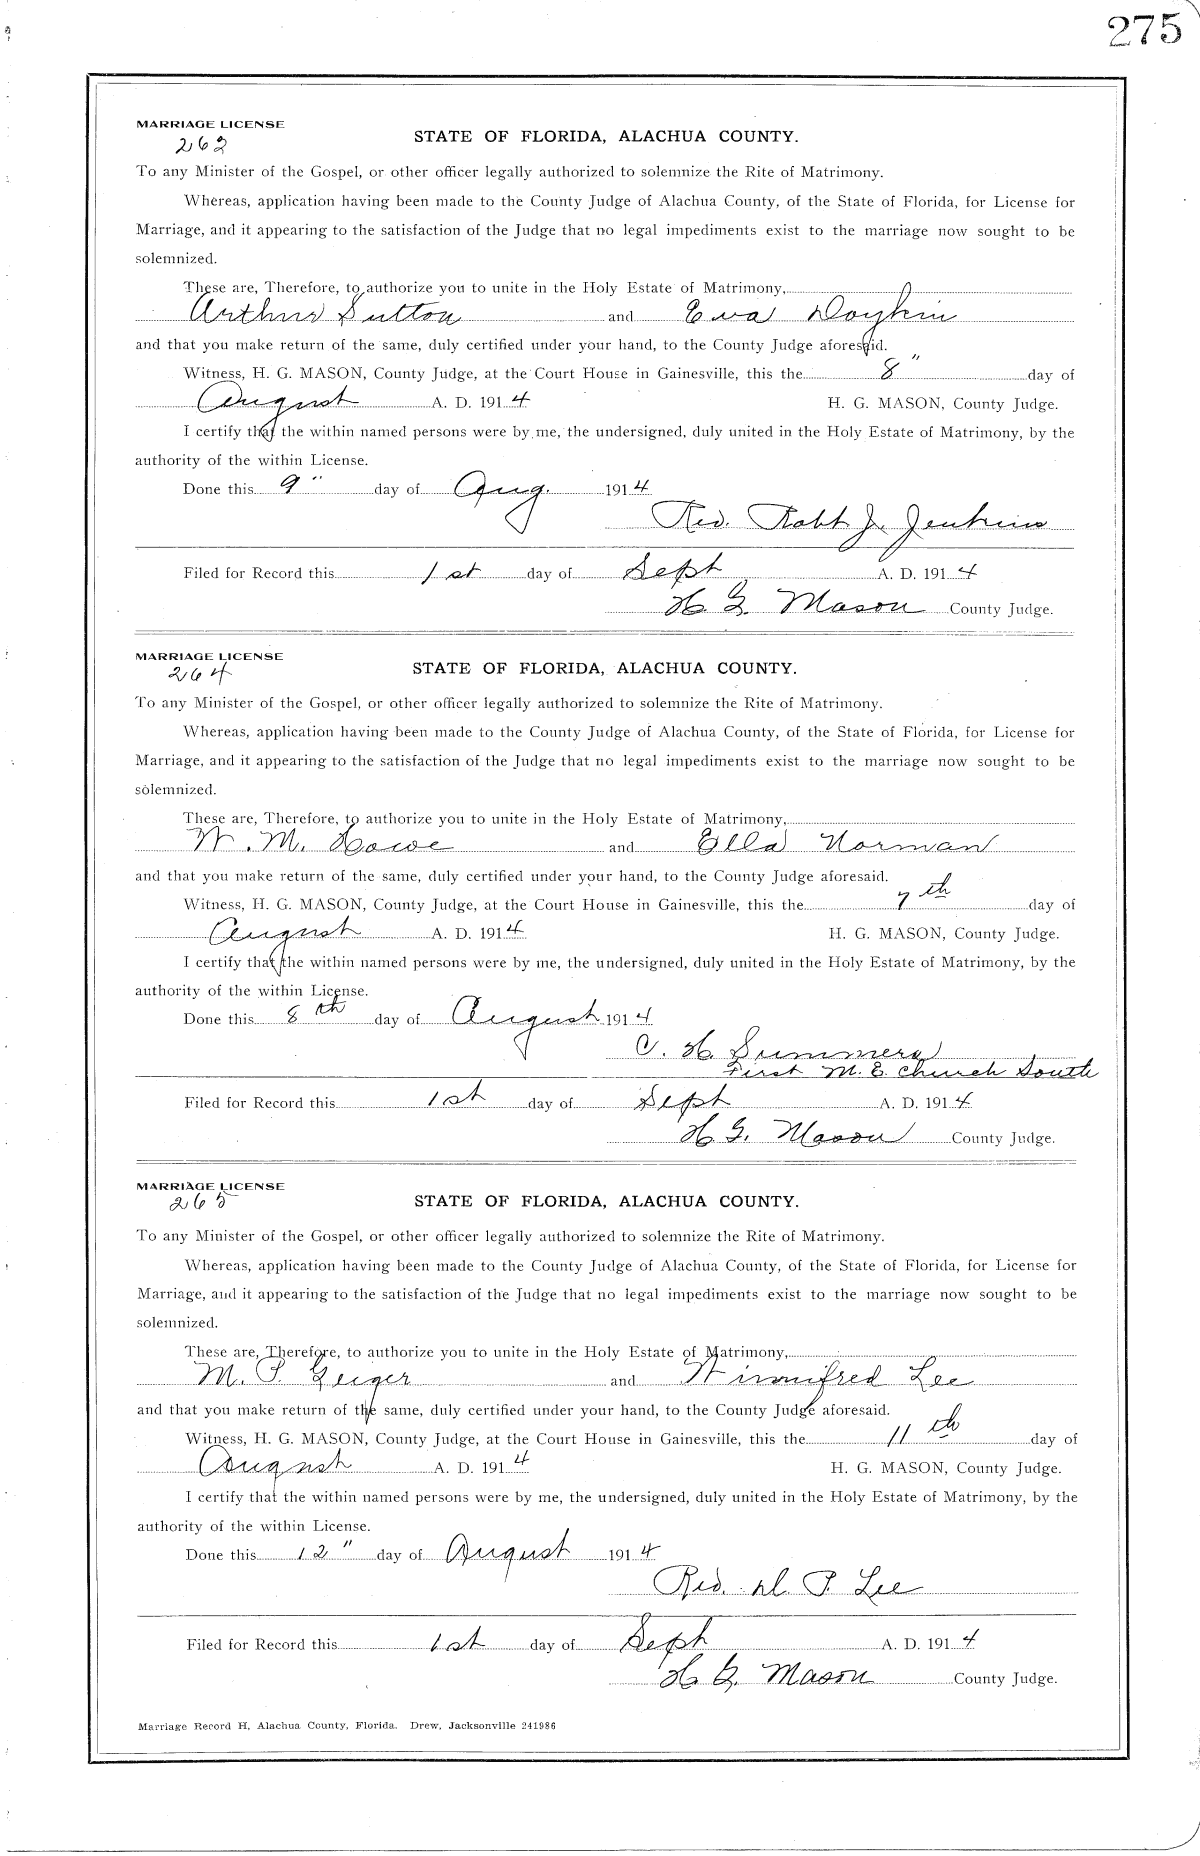 275
MARRIAGE LICENSE
262
STATE OF FLORIDA, ALACHUA COUNTY.
To any Minister of the Gospel, or other officer legally authorized to solemnize the Rite of Matrimony.
Whereas, application having been made to the County Judge of Alachua County, of the State of Florida, for License for
Marriage, and it appearing to the satisfaction of the Judge that no legal impediments exist to the marriage now sought to be
solemnized.
These are, Therefore, to authorize you to unite in the Holy Estate of Matrimony,
Arthur Sutton and Eva Doykin
and that you make return of the same, duly certified under your hand, to the County Judge aforesaid.
Witness, H. G. MASON, County Judge, at the Court House in Gainesville, this the 8" day of
August A. D. 1914 H. G. MASON, County Judge.
I certify that the within named persons were by me, the undersigned, duly united in the Holy Estate of Matrimony, by the
authority of the within License.
Done this 9" day of Aug. 1914
Rev. Robt J. Jenkins
Filed for Record this 1st day of Sept A. D. 1914
H. G. Mason County Judge.
MARRIAGE LICENSE
264
STATE OF FLORIDA, ALACHUA COUNTY.
To any Minister of the Gospel, or other officer legally authorized to solemnize the Rite of Matrimony.
Whereas, application having been made to the County Judge of Alachua County, of the State of Florida, for License for
Marriage, and it appearing to the satisfaction of the Judge that no legal impediments exist to the marriage now sought to be
solemnized.
These are, Therefore, to authorize you to unite in the Holy Estate of Matrimony,
W. M. Howe and Ella Norman
and that you make return of the same, duly certified under your hand, to the County Judge aforesaid.
Witness, H. G. MASON, County Judge, at the Court House in Gainesville, this the 7th day of
August A. D. 1914 H. G. MASON, County Judge.
I certify that the within named persons were by me, the undersigned, duly united in the Holy Estate of Matrimony, by the
authority of the within License.
Done this 8th day of August 1914
C. H. Summers
First M. E. Church South
Filed for Record this 1st day of Sept A. D. 1914
H. G. Mason County Judge.
MARRIAGE LICENSE
265
STATE OF FLORIDA, ALACHUA COUNTY.
To any Minister of the Gospel, or other officer legally authorized to solemnize the Rite of Matrimony.
Whereas, application having been made to the County Judge of Alachua County, of the State of Florida, for License for
Marriage, and it appearing to the satisfaction of the Judge that no legal impediments exist to the marriage now sought to be
solemnized.
These are, Therefore, to authorize you to unite in the Holy Estate of Matrimony,
M. P. Geiger and Winnifred Lee
and that you make return of the same, duly certified under your hand, to the County Judge aforesaid.
Witness, H. G. MASON, County Judge, at the Court House in Gainesville, this the 11th day of
August A. D. 1914 H. G. MASON, County Judge.
I certify that the within named persons were by me, the undersigned, duly united in the Holy Estate of Matrimony, by the
authority of the within License.
Done this 12" day of August 1914
Rev. P. Lee
Filed for Record this 1st day of Sept A. D. 1914
H. G. Mason County Judge.
Marriage Record H, Alachua County, Florida. Drew, Jacksonville 241986